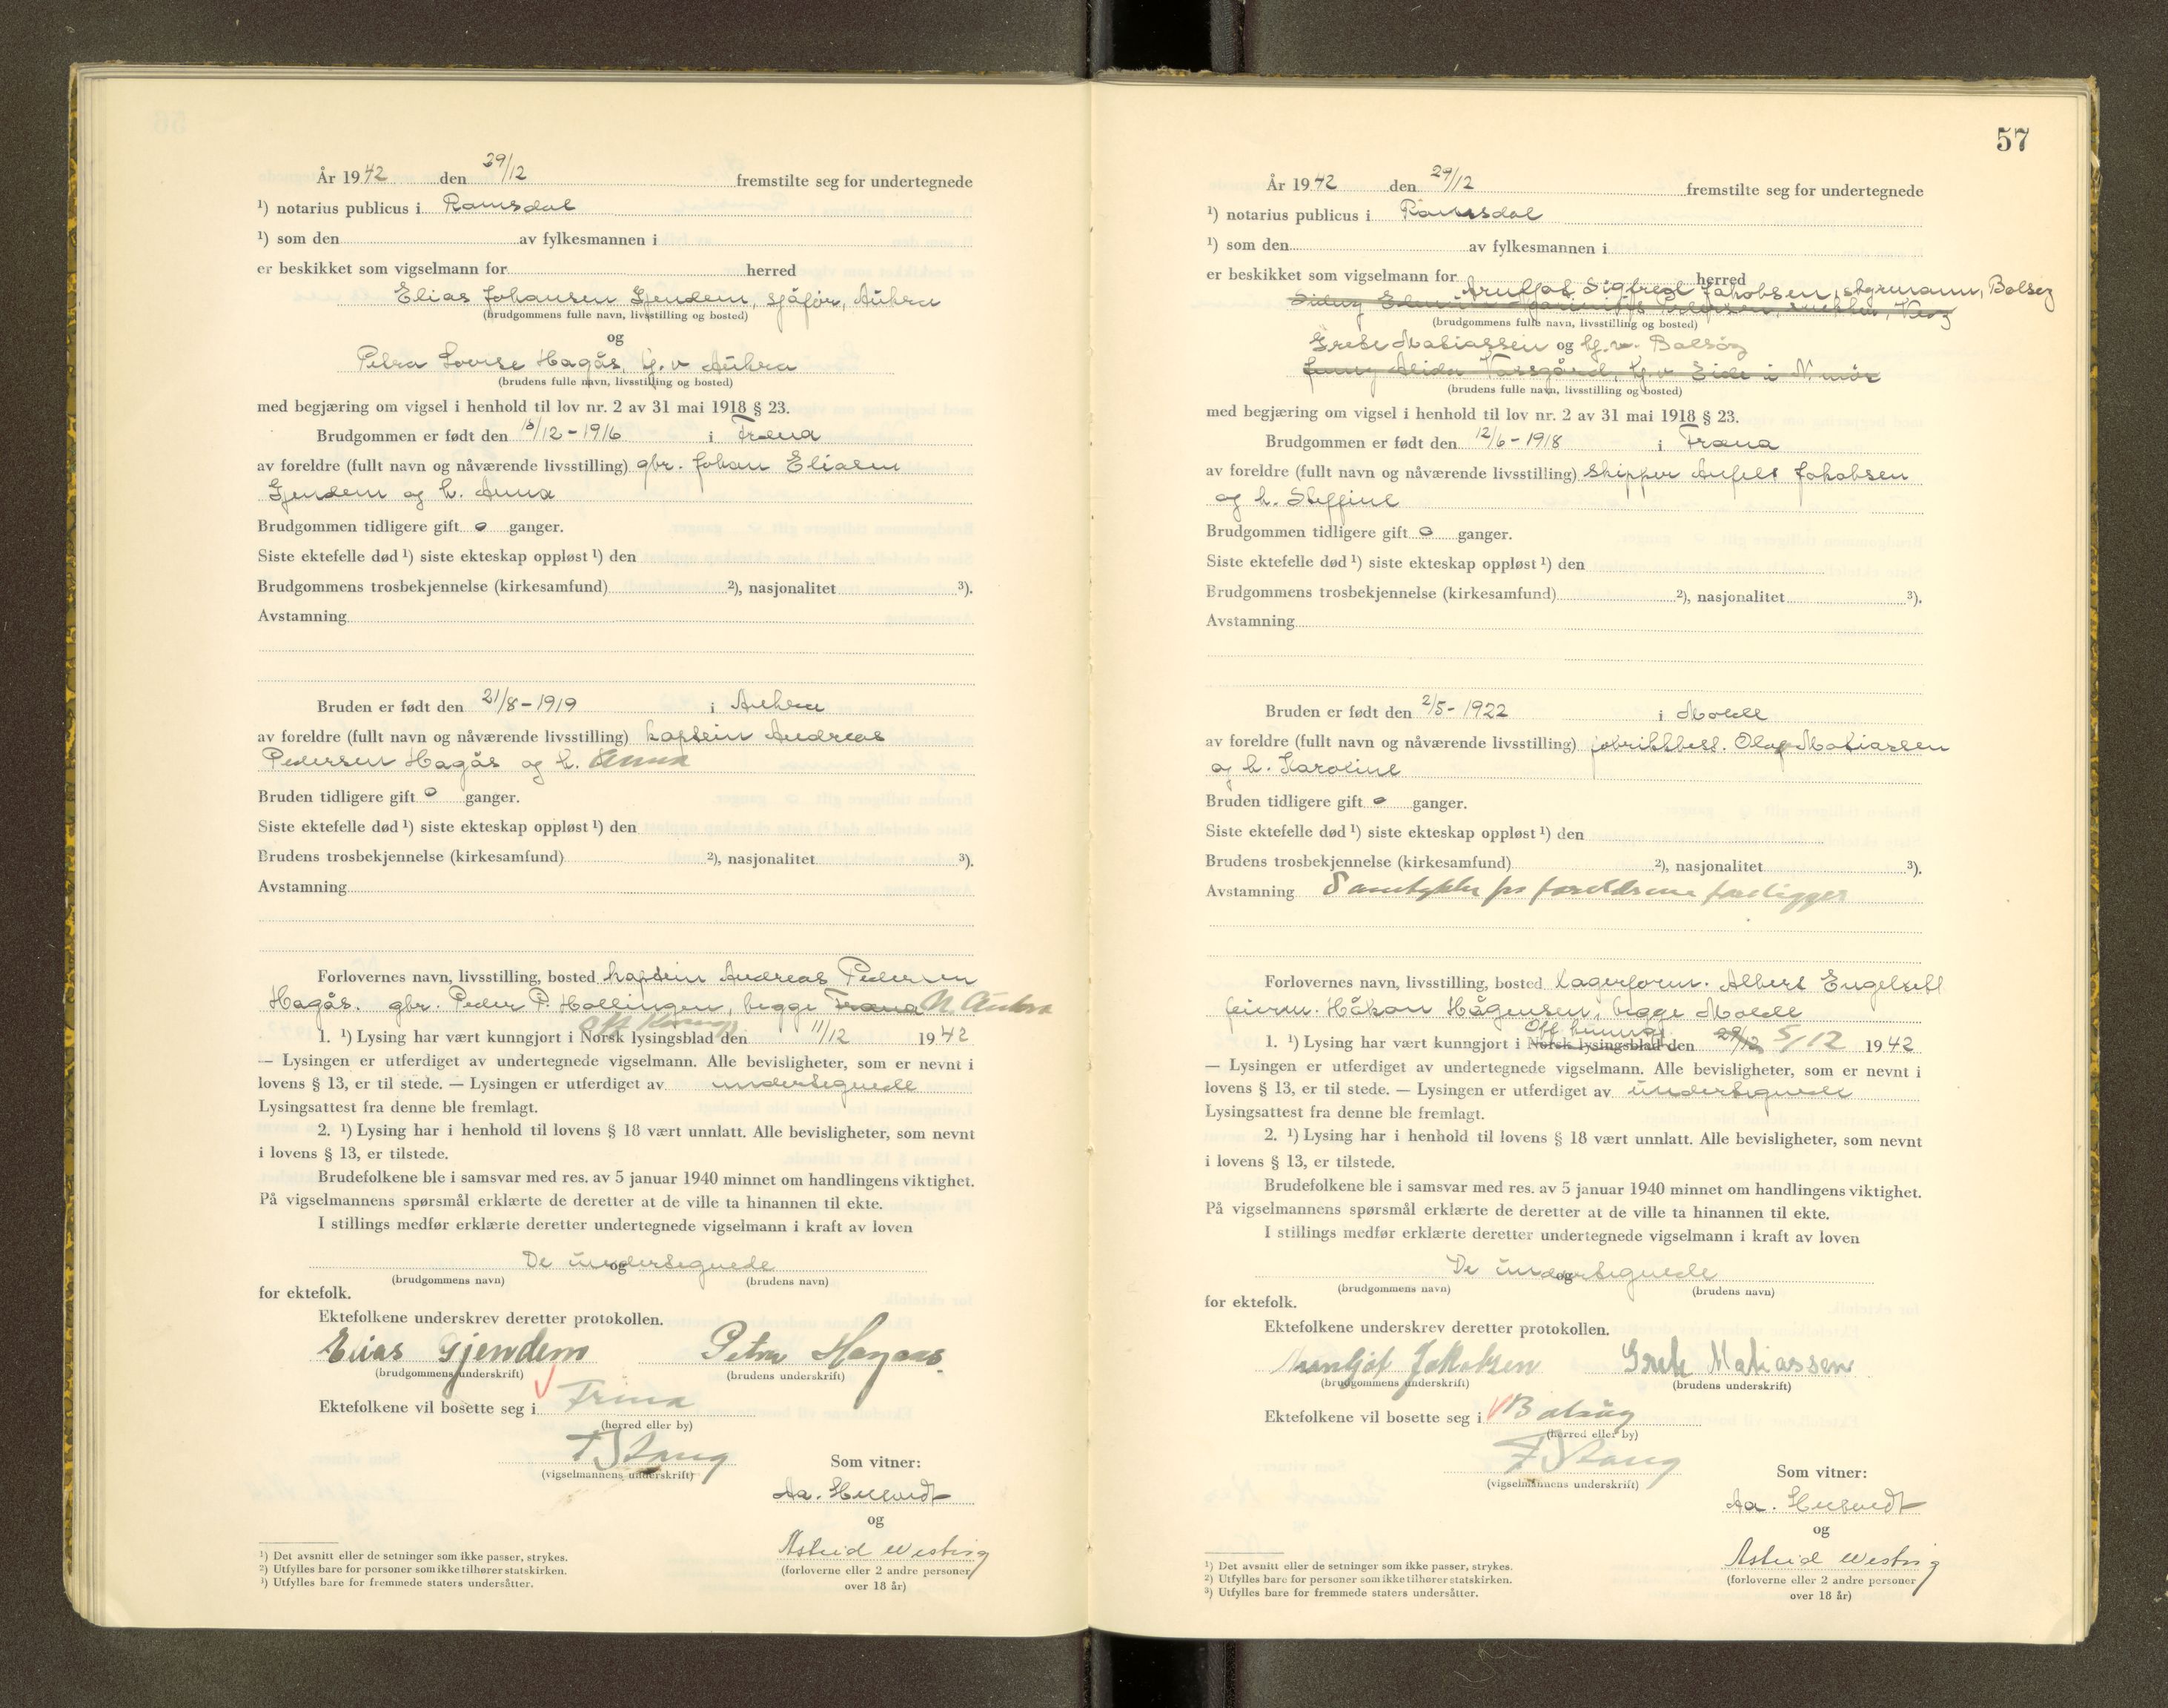 År 1942 den 29/12 fremstilte seg for undertegnede
¹) notarius publicus i Romsdal
¹) som den av fylkesmannen i
er beskikket som vigselmann for herred
Elias Johansen Gjendem, sjåfør, Aukra
(brudgommens fulle navn, livsstilling og bosted)
og
Petra Lovise Hagås, hj.v Aukra
(brudens fulle navn, livsstilling og bosted)
med begjæring om vigsel i henhold til lov nr. 2 av 31 mai 1918 § 23.
Brudgommen er født den /12-1916 i Fræna
av foreldre (fullt navn og nåværende livsstilling) gbr. Johan Eliasen
Gjendem og h. Anna
Brudgommen tidligere gift o ganger.
Siste ektefelle død ¹) siste ekteskap oppløst ¹) den
Brudgommens trosbekjennelse (kirkesamfund) ²), nasjonalitet ³).
Avstamning
Bruden er født den 21/8-1919 i Aukra
av foreldre (fullt navn og nåværende livsstilling) kaptein Andreas
Pedersen Hagås og h. Anna
Bruden tidligere gift o ganger.
Siste ektefelle død ¹) siste ekteskap oppløst ¹) den
Brudens trosbekjennelse (kirkesamfund) ²), nasjonalitet ³).
Avstamning
Forlovernes navn, livsstilling, bosted kaptein Andreas Pedersen
Hagås. gbr. Peder P. Hollingen, begge Fræna N. Aukra
Off. Kunngj.
1. ¹) Lysing har vært kunngjort i Norsk lysingsblad den 11/12 1942
— Lysingen er utferdiget av undertegnede vigselmann. Alle bevisligheter, som er nevnt i
lovens § 13, er til stede. — Lysingen er utferdiget av undertegnede
Lysingsattest fra denne ble fremlagt.
2. ¹) Lysing har i henhold til lovens § 18 vært unnlatt. Alle bevisligheter, som nevnt
i lovens § 13, er tilstede.
Brudefolkene ble i samsvar med res. av 5 januar 1940 minnet om handlingens viktighet.
På vigselmannens spørsmål erklærte de deretter at de ville ta hinannen til ekte.
I stillings medfør erklærte deretter undertegnede vigselmann i kraft av loven
De undertegnede
og
(brudgommens navn) (brudens navn)
for ektefolk.
Ektefolkene underskrev deretter protokollen.
Elias Gjendem Petra Hagaas.
(brudgommens underskrift) (brudens underskrift)
Ektefolkene vil bosette seg i Fræna
(herred eller by)
F Stang
(vigselmannens underskrift)
Som vitner:
Aa. Husvedt
og
Astrid Westvig
(forloverne eller 2 andre personer
over 18 år)
¹) Det avsnitt eller de setninger som ikke passer, strykes.
²) Utfylles bare for personer som ikke tilhører statskirken.
³) Utfylles bare for fremmede staters undersåtter.
57
År 1942 den 29/12 fremstilte seg for undertegnede
¹) notarius publicus i Romsdal
¹) som den av fylkesmannen i
er beskikket som vigselmann for herred
Arnljot Sigfred Jakobsen, styrmann, Bolsøy
(brudgommens fulle navn, livsstilling og bosted)
Grete Matiassen og hj.v. Bolsøy
Jenny Alida Vassgård, hj.v Eide i N.møre
(brudens fulle navn, livsstilling og bosted)
med begjæring om vigsel i henhold til lov nr. 2 av 31 mai 1918 § 23.
Brudgommen er født den 12/6-1918 i Fræna
av foreldre (fullt navn og nåværende livsstilling) skipper Jakobsen
og h. Steffine
Brudgommen tidligere gift o ganger.
Siste ektefelle død ¹) siste ekteskap oppløst ¹) den
Brudgommens trosbekjennelse (kirkesamfund) ²), nasjonalitet ³).
Avstamning
Bruden er født den 2/5-1922 i Molde
av foreldre (fullt navn og nåværende livsstilling) fabrikkbest. Olaf Matiassen
og h. Karoline
Bruden tidligere gift o ganger.
Siste ektefelle død ¹) siste ekteskap oppløst ¹) den
Brudens trosbekjennelse (kirkesamfund) ²), nasjonalitet ³).
Avstamning Samtykke fra foreldrene foreligger
Forlovernes navn, livsstilling, bosted lagerform. Albert Engelsett
feierm. Håkon Hågensen, begge Molde
Off. kunngj.
1. ¹) Lysing har vært kunngjort i Norsk lysingsblad den 29/12 5/12 1942
— Lysingen er utferdiget av undertegnede vigselmann. Alle bevisligheter, som er nevnt i
lovens § 13, er til stede. — Lysingen er utferdiget av undertegnede
Lysingsattest fra denne ble fremlagt.
2. ¹) Lysing har i henhold til lovens § 18 vært unnlatt. Alle bevisligheter, som nevnt
i lovens § 13, er tilstede.
Brudefolkene ble i samsvar med res. av 5 januar 1940 minnet om handlingens viktighet.
På vigselmannens spørsmål erklærte de deretter at de ville ta hinannen til ekte.
I stillings medfør erklærte deretter undertegnede vigselmann i kraft av loven
De undertegnede
og
(brudgommens navn) (brudens navn)
for ektefolk.
Ektefolkene underskrev deretter protokollen.
Arnljot Jakobsen Grete Matiassen
(brudgommens underskrift) (brudens underskrift)
Ektefolkene vil bosette seg i Bolsøy
(herred eller by)
F Stang
(vigselmannens underskrift)
Som vitner:
Aa. Husvedt
og
Astrid Westvig
(forloverne eller 2 andre personer
over 18 år)
¹) Det avsnitt eller de setninger som ikke passer, strykes.
²) Utfylles bare for personer som ikke tilhører statskirken.
³) Utfylles bare for fremmede staters undersåtter.